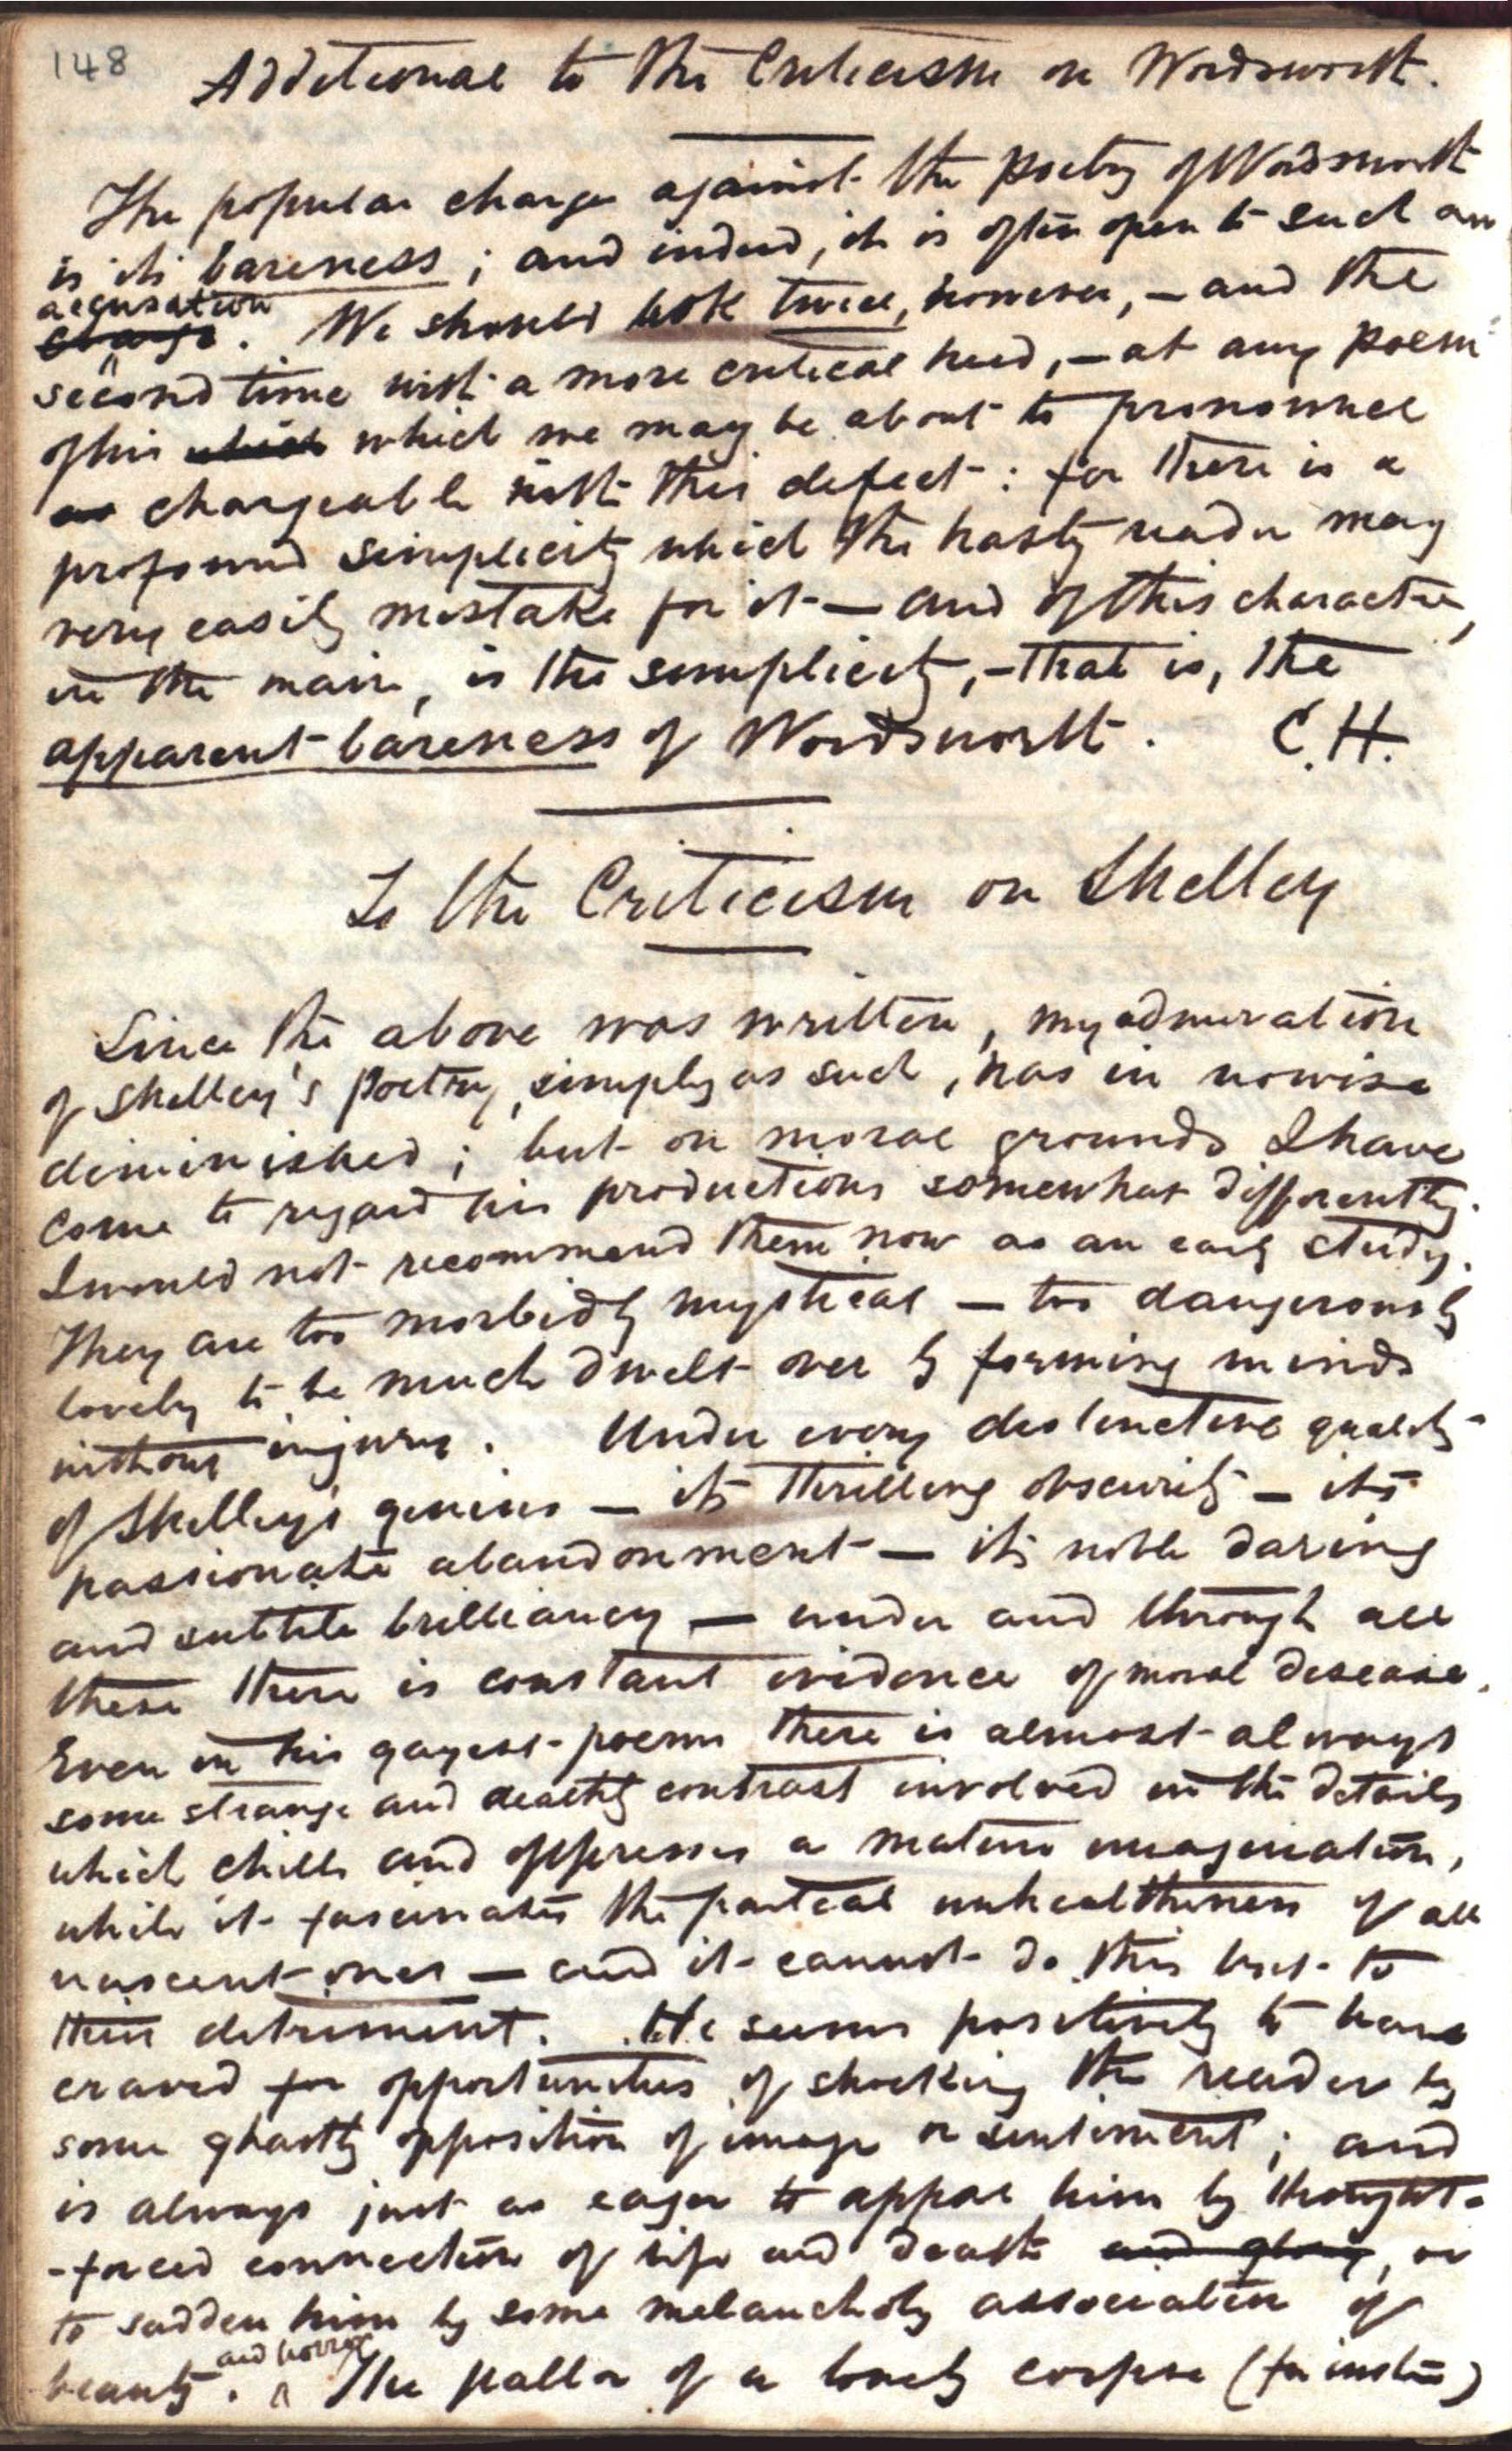 148
Additional to the Criticism on Wordsworth.
The popular charge against the poetry of Wordsworth
is its bareness; and indeed, it is often open to such an
accusation
charge. We should look twice, however, – and the
second time with a more critical heed, – at any poem
of his which which we may be about to pronounce
as chargeable with this defect: for there is a
profound simplicity which the hasty reader may
very easily mistake for it – and of this character,
in the main, is the simplicity, – that is, the
apparent bareness of Wordsworth. C.H.
To the Criticism on Shelley
Since the above was written, my admiration
of Shelley's poetry, simply as such, has in nowise
diminished; but on moral grounds I have
come to regard his productions somewhat differently.
I would not recommend them now as an early study.
They are too morbidly mystical – too dangerously
lovely to be much dwelt over by forming minds
without injury. Under every distinctive quality
of Shelley's genius – its thrilling obscurity – its
passionate abandonment – its noble daring
and subtile brilliancy – under and through all
these there is constant evidence of moral disease.
Even in his gayest poems there is almost always
some strange and deathly contrast involved in the details
which chills and oppresses a mature imagination,
while it fascinates the poetical unhealthiness of all
nascent ones – and it cannot do this but to
their detriment. He seems positively to have
craved for opportunities of shocking the reader by
some ghastly opposition of image or sentiment; and
is always just as eager to appal him by thought-
-forced connection of life and death and glory, or
to sadden him by some melancholy association of
and horror
beauty. The pallor of a lovely corpse (for instce)